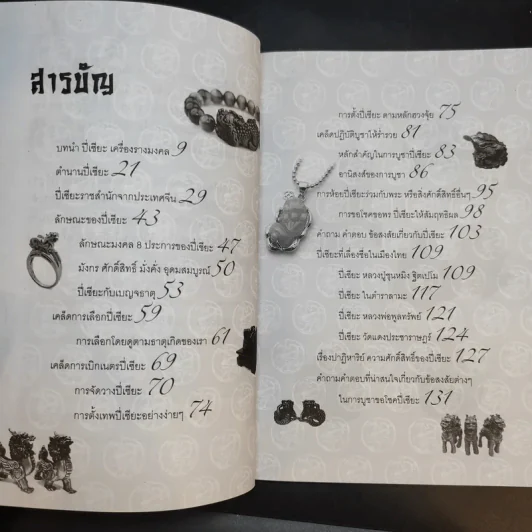 สารบัญ
บทนำ ปี่เซียะ เครื่องรางมงคล 9
ตำนานปี่เซียะ 21
ปี่เซียะราชสำนักจากประเทศจีน 29
ลักษณะของปี่เซียะ 43
ลักษณะมงคล 8 ประการของปี่เซียะ 47
มังกร ศักดิ์สิทธิ์ มั่งคั่ง อุดมสมบูรณ์ 50
ปี่เซียะกับเบญจธาตุ 53
เคล็ดการเลือกปี่เซียะ 59
การเลือกโดยดูตามธาตุเกิดของเรา 61
เคล็ดการเบิกเนตรปี่เซียะ 69
การจัดวางปี่เซียะ 70
การตั้งเทพปี่เซียะอย่างง่ายๆ 74
การตั้งปี่เซียะ ตามหลักฮวงจุ้ย 75
เคล็ดปฏิบัติบูชาให้ร่ำรวย 81
หลักสำคัญในการบูชาปี่เซียะ 83
อานิสงส์ของการบูชา 86
การห้อยปี่เซียะร่วมกับพระ หรือสิ่งศักดิ์สิทธิ์อื่นๆ 95
การขอโชคขอพร ปี่เซียะให้สัมฤทธิผล 98
คำถาม คำตอบ ข้อสงสัยเกี่ยวกับปี่เซียะ 103
ปี่เซียะที่เลื่องชื่อในเมืองไทย 109
ปี่เซียะ หลวงปู่ชุนหมิง ฐิตเปโม 109
ปี่เซียะ ในตำราดามะ 117
ปี่เซียะ หลวงพ่อพูลทรัพย์ 121
ปี่เซียะ วัดแดงประชาราษฎร์ 124
เรื่องปาฏิหาริย์ ความศักดิ์สิทธิ์ของปี่เซียะ 127
คำถามคำตอบที่น่าสนใจเกี่ยวกับข้อสงสัยต่างๆ
ในการบูชาขอโชคปี่เซียะ 131